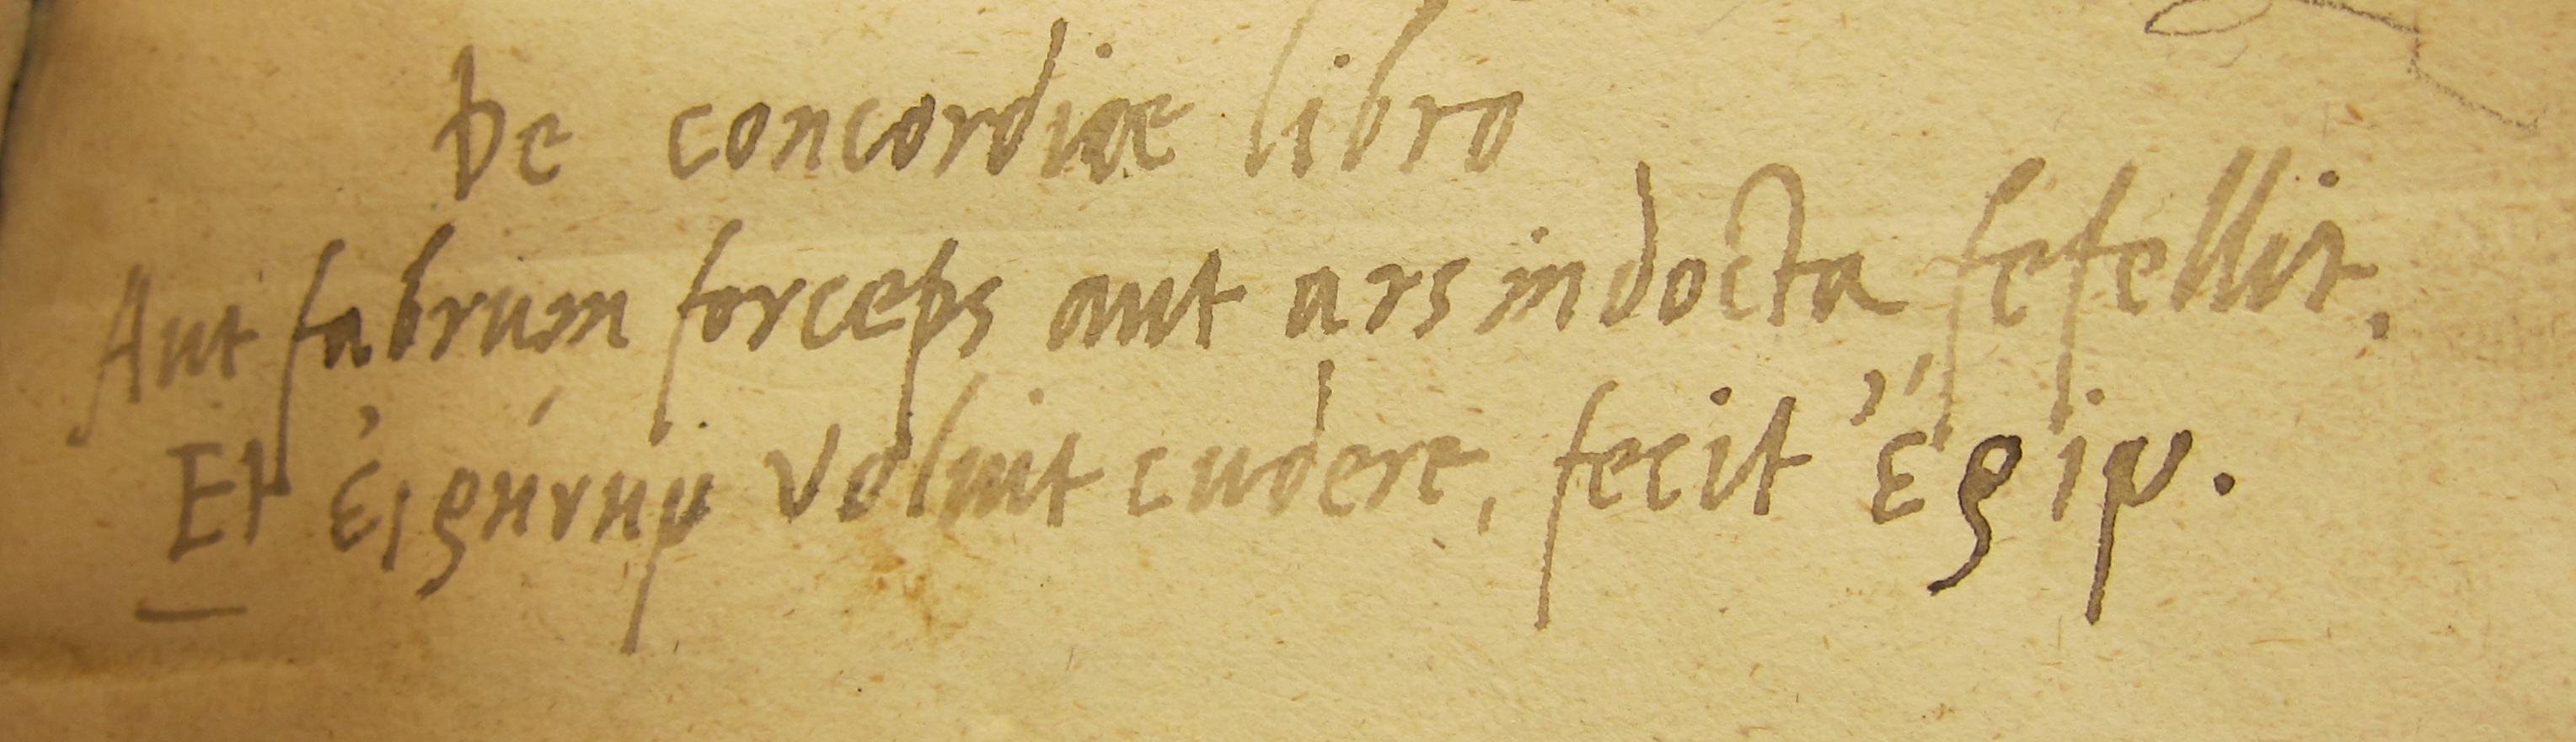 De concordiae libro
Aut fabrum forceps aut ars indocta fefellit.
Et εἰρήνην voluit cudere, fecit ἔριν.